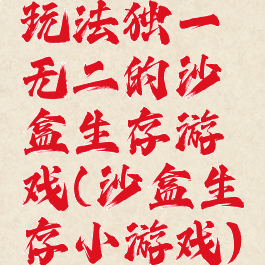 玩法独一
无二的沙
盒生存游
戏(沙盒生
存小游戏)